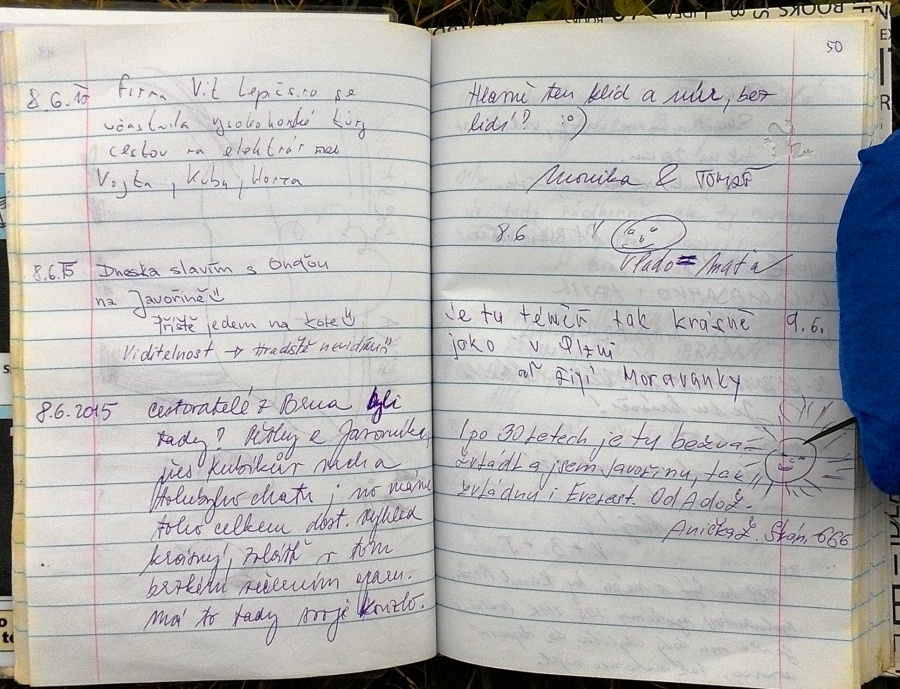 8.6.15 Firma Vít Lepič s.ro se
účastnila vysokohorské túry
cestou na elektrár
Vojta, Kuba, Honza
8.6.15 Dneska slavím s Onďou
na Javořině
Příště jedem na kole
Viditelnost → Hradiště nevidím
8.6.2015 cestovatelé z Brna byli
tady? Pěšky z Javorníka,
přes Kubíkův vrch a
Holubyho chatu; no máme
toho celkem dost. Výhled
krásný, zvláště v tom
brzkém večerním oparu.
Má to tady svoje kouzlo.
50
Hlavně ten klid a mír, bez
lidí? :o)
Monika & Tomáš
8.6
Vlado = Maťa
Je tu téměř tak krásně 9.6.
jako v Plzni
ať žijí Moravanky
I po 30 letech je tu bezva -
zvládla jsem Javořinu, tak
zvládnu i Everest. Od A do Ž.
Anička Ž. 666